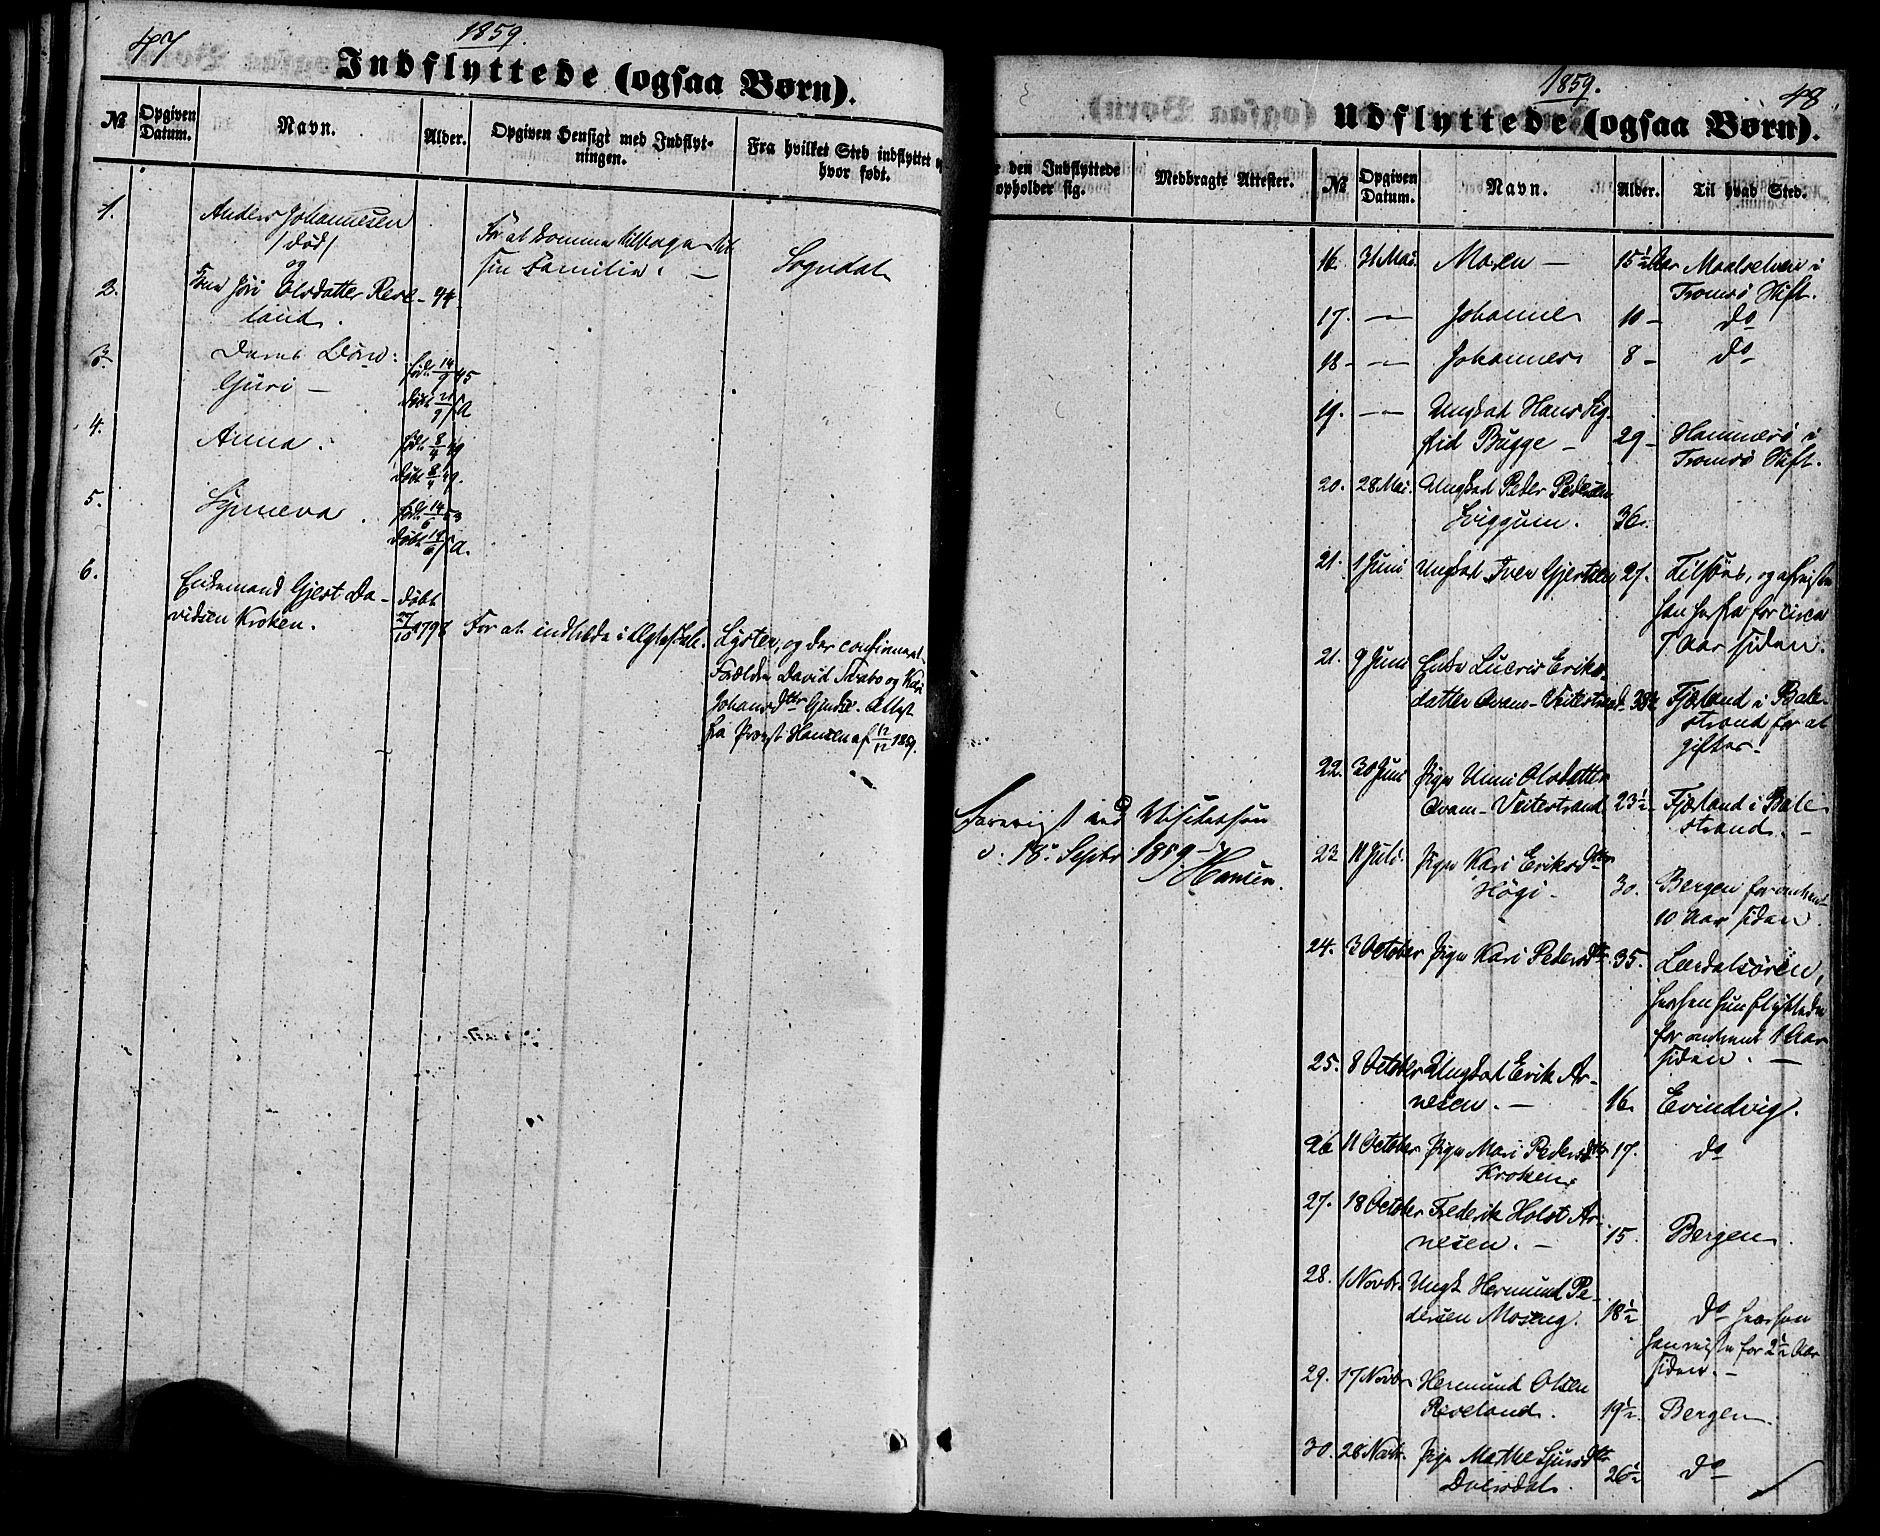 47
1859.
Indflyttede (ogsaa Børn).
№
Opgiven Datum.
Navn.
Alder.
Opgiven Hensigt med Indflyt-
ningen.
Fra hvilket Sted indflyttet og
hvor født.
1.
Anders Johannesen
/død/
og
For at komme tilbage til
sin Familie. —
Sogndal
2.
Olsdatter Reve-
land.
44
3.
Deres Børn:
Guri —
4.
Anna.
5.
Synneva.
6.
Enkemand Gjert Da-
vidsen Kroken.
døbt
27/10 1798
For at indtræde i Ægteskab.
Lyster, og der confirmeret.
Forældre David og Kari
Johansdtr Attest
fra Provst Hansen af 12/12 1859.
1859.
48.
Udflyttede (ogsaa Børn).
den Indflyttede
opholder sig.
Medbragte Attester.
№
Opgiven Datum.
Navn.
Alder.
Til hvad Sted.
Forevist ved Visitatsen
d: 18. Septbr 1859 —
Hansen.
16. 31 Mai. Maren — 15½ Aar Maalselven i
Tromsø Stift.
17. — Johanne 10 — do
18 — — Johannes 8 — do
19. — — Ungkarl Hans Sig-
frid Bugge — 29 — Hammerø i
Tromsø Stift.
20. 28 Mai. Ungkarl Peder Pedersen
36.
21. 1 Juni Ungkarl Iver Gjertsen 27. og afreiste
han herfra for circa
7 Aar siden.
21. 9 Juni Enke Lucris Eriks-
datter Qvam-Veitestrand Fjærland i Bale-
strand for at
giftes.
22. 30 Juni Pigen Unni Olsdatter
Qvam-Veitestrand 23½ Fjærland i Bale
strand. —
23 11 Juli. Pigen Kari Eriksdtr
Høgi — 30. Bergen for omtrent
10 Aar siden
24. 3 October Pigen Kari Pedersdtr 35. Lærdalsøren,
hvorhen hun flyttede
for omtrent 1 Aar
siden. —
25. 8 October Ungkarl Erik Ar-
nesen. — 16. Evindvig.
26 11 October Pigen Mari Pedersdtr 17. do
Kroken
27. 18 October Frederik Holst Ar-
nesen. — 15. Bergen
28. 1 Novbr. Ungk. Hermund Pe-
dersen Moseng. 18½ do hvorhen
han reiste for 2½ Aar
siden. —
29. 17 Novbr Hermund Olsen
Reveland. 19½. Bergen
30. 28 Novbr. Pige Marthe Sjursdtr
Dalsdal. 26½ do